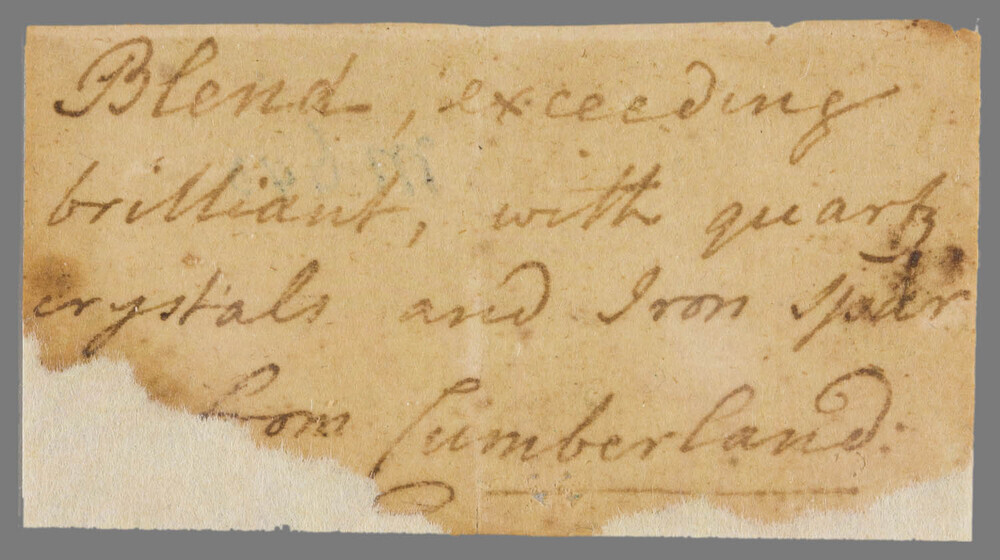 Blend, exceeding
brilliant, with quartz
crystals and Iron spar
from Cumberland.